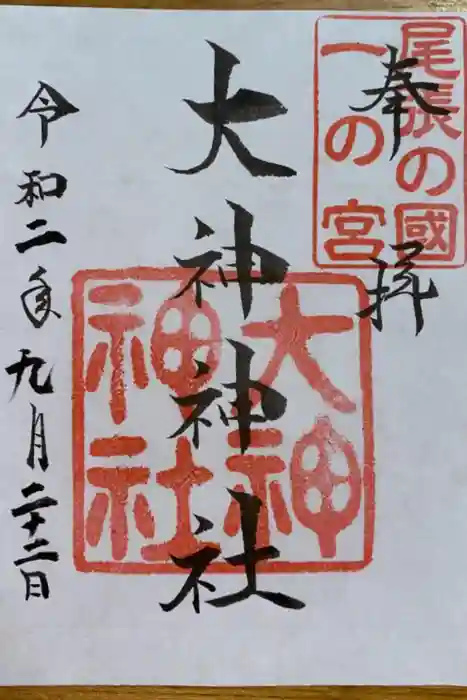 尾張の國
一の宮
奉拝
大神神社
大神
神社
令和二年九月二十二日